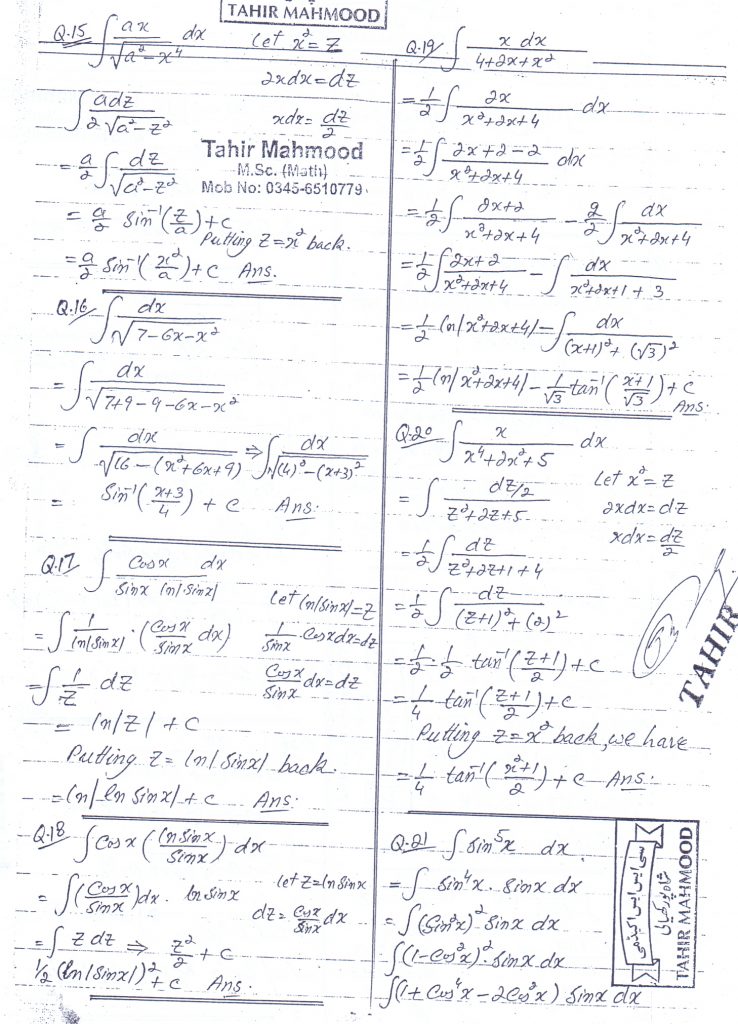 TAHIR MAHMOOD
Q.15 ∫ ax/√(a²-x⁴) dx Let x² = Z
2xdx = dZ
∫ adz/2√(a²-z²) xdx = dz/2
Tahir Mahmood
M.Sc. (Math)
Mob No: 0345-6510779
= a/2 ∫ dz/√(a²-z²)
= a/2 Sin⁻¹(z/a)+c
Putting Z=x² back.
= a/2 Sin⁻¹(x²/a)+c Ans.
Q.16 ∫ dx/√(7-6x-x²)
= ∫ dx/√(7+9-9-6x-x²)
= ∫ dx/√(16-(x²+6x+9)) ⇒ ∫ dx/√((4)²-(x+3)²)
= Sin⁻¹(x+3/4) + c Ans.
Q.17 ∫ Cosx dx/Sinx ln|Sinx|
Let ln|Sinx|=Z
= ∫ 1/ln|Sinx| · (Cosx/Sinx dx) 1/Sinx · Cosxdx=dz
= ∫ 1/Z dZ Cosx/Sinx dx=dZ
= ln|Z| + c
Putting Z = ln|Sinx| back.
= ln|ln Sinx| + c Ans:
Q.18 ∫ Cosx (ln Sinx/Sinx) dx
= ∫ (Cosx/Sinx) dx . ln Sinx let Z=ln Sinx
dZ = Cosx/Sinx dx
= ∫ Z dZ ⇒ Z²/2 + c
1/2 (ln|Sinx|)² + c Ans.
Q.19 ∫ x dx/4+2x+x²
= 1/2 ∫ 2x/x²+2x+4 dx
= 1/2 ∫ 2x+2-2/x²+2x+4 dx
= 1/2 ∫ 2x+2/x²+2x+4 - 2/2 ∫ dx/x²+2x+4
= 1/2 ∫ 2x+2/x²+2x+4 - ∫ dx/x²+2x+1+3
= 1/2 ln|x²+2x+4| - ∫ dx/(x+1)²+(√3)²
= 1/2 ln|x²+2x+4| - 1/√3 tan⁻¹(x+1/√3)+c
Ans.
Q.20 ∫ x/x⁴+2x²+5 dx
Let x²=Z
= ∫ dZ/2/Z²+2Z+5 2xdx=dZ
xdx=dZ/2
= 1/2 ∫ dZ/Z²+2Z+1+4
= 1/2 ∫ dZ/(Z+1)²+(2)²
= 1/2 · 1/2 tan⁻¹(Z+1/2)+c
= 1/4 tan⁻¹(Z+1/2)+c
Putting Z=x² back, we have
= 1/4 tan⁻¹(x²+1/2)+c Ans:
TAHIR
Q.21 ∫ Sin⁵x dx
= ∫ Sin⁴x. Sinx dx
= ∫ (Sin²x)² Sinx dx
∫ (1-Cos²x)². Sinx dx
∫ (1+Cos⁴x-2Cos²x) Sinx dx
TAHIR MAHMOOD